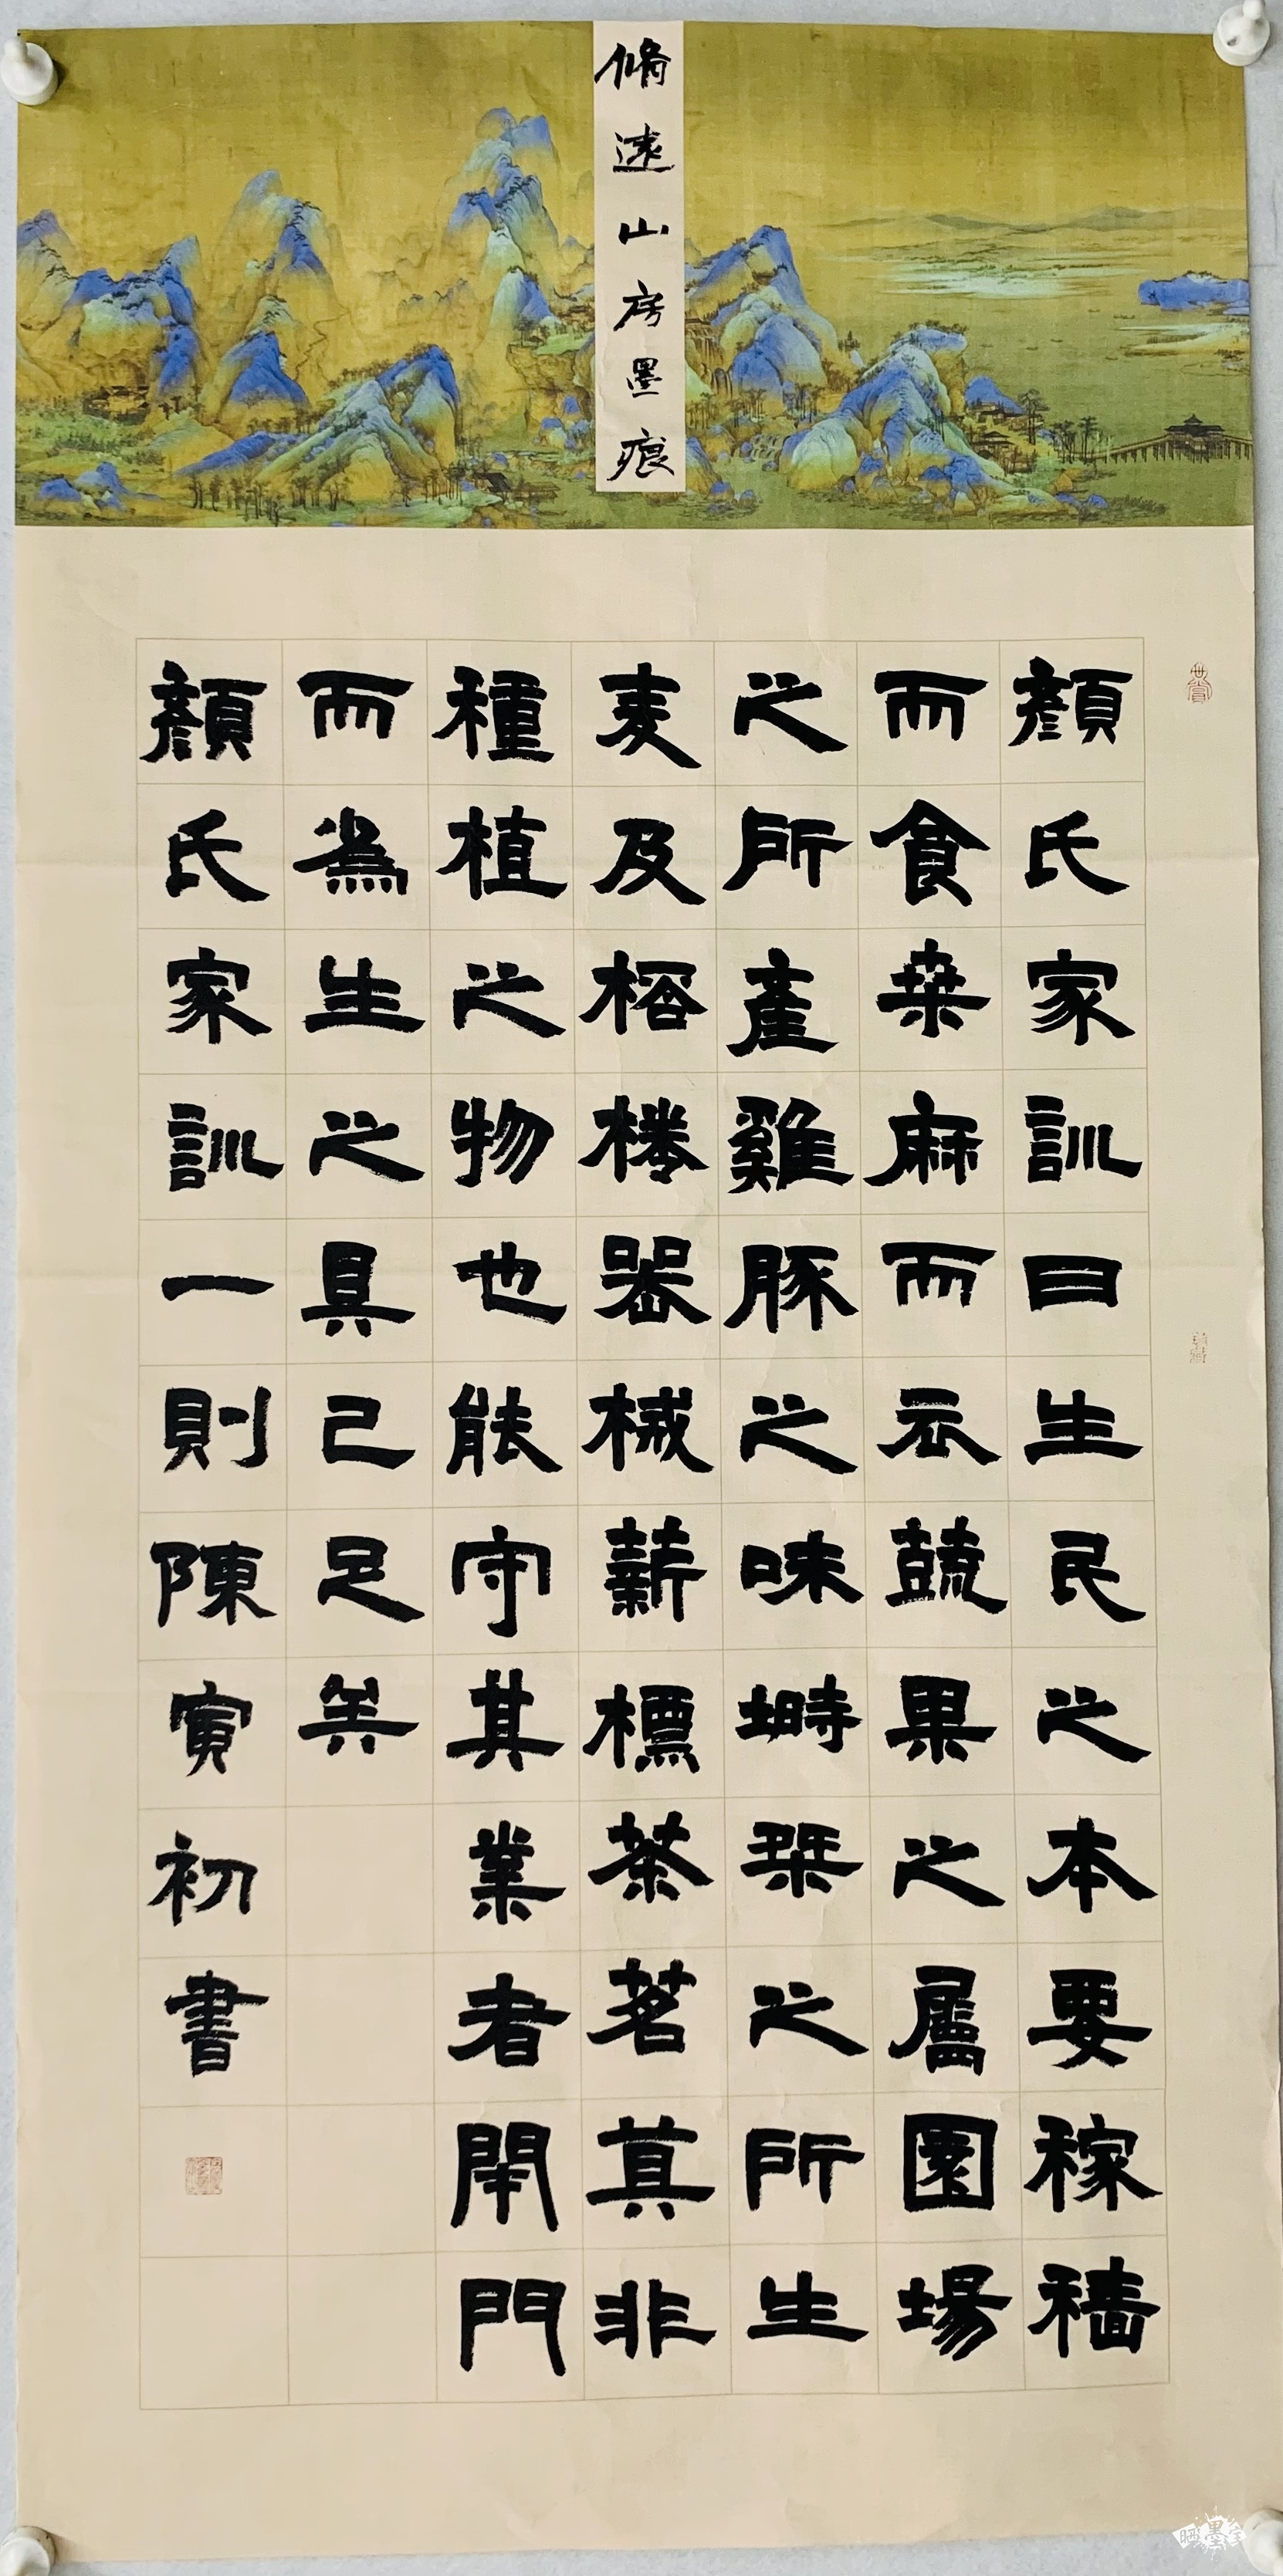 脩遠山房墨痕
顏氏家訓曰生民之本要稼穡
而食桑麻而衣蔬果之屬園場
之所產雞豚之味塒之所生
爰及桮棬器械薪茶茗莫非
種植之物也能守其業者閉門
而為生之具已足矣
顏氏家訓一則陳寅初書